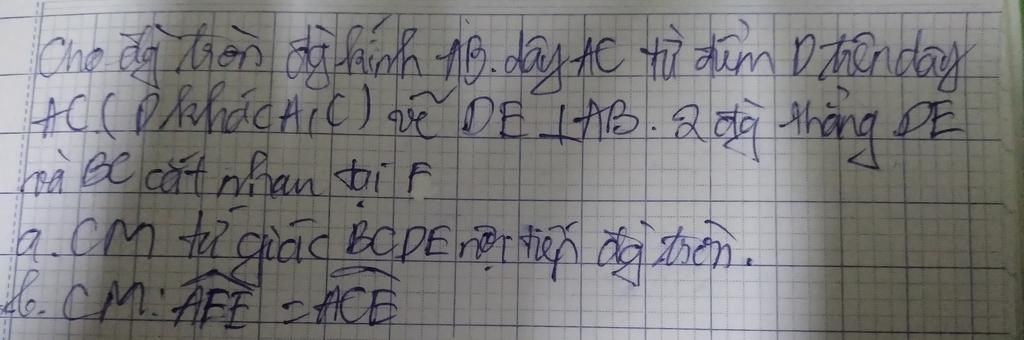 Cho đg tròn đg kính AB. dây AC từ điểm D trên dây
AC (D khác A, C) vẽ DE ⊥ AB. 2 đg thẳng DE
và BC cắt nhau tại F
a. CM tứ giác BCDE nội tiếp đg tròn.
b. CM: AFE = ACE